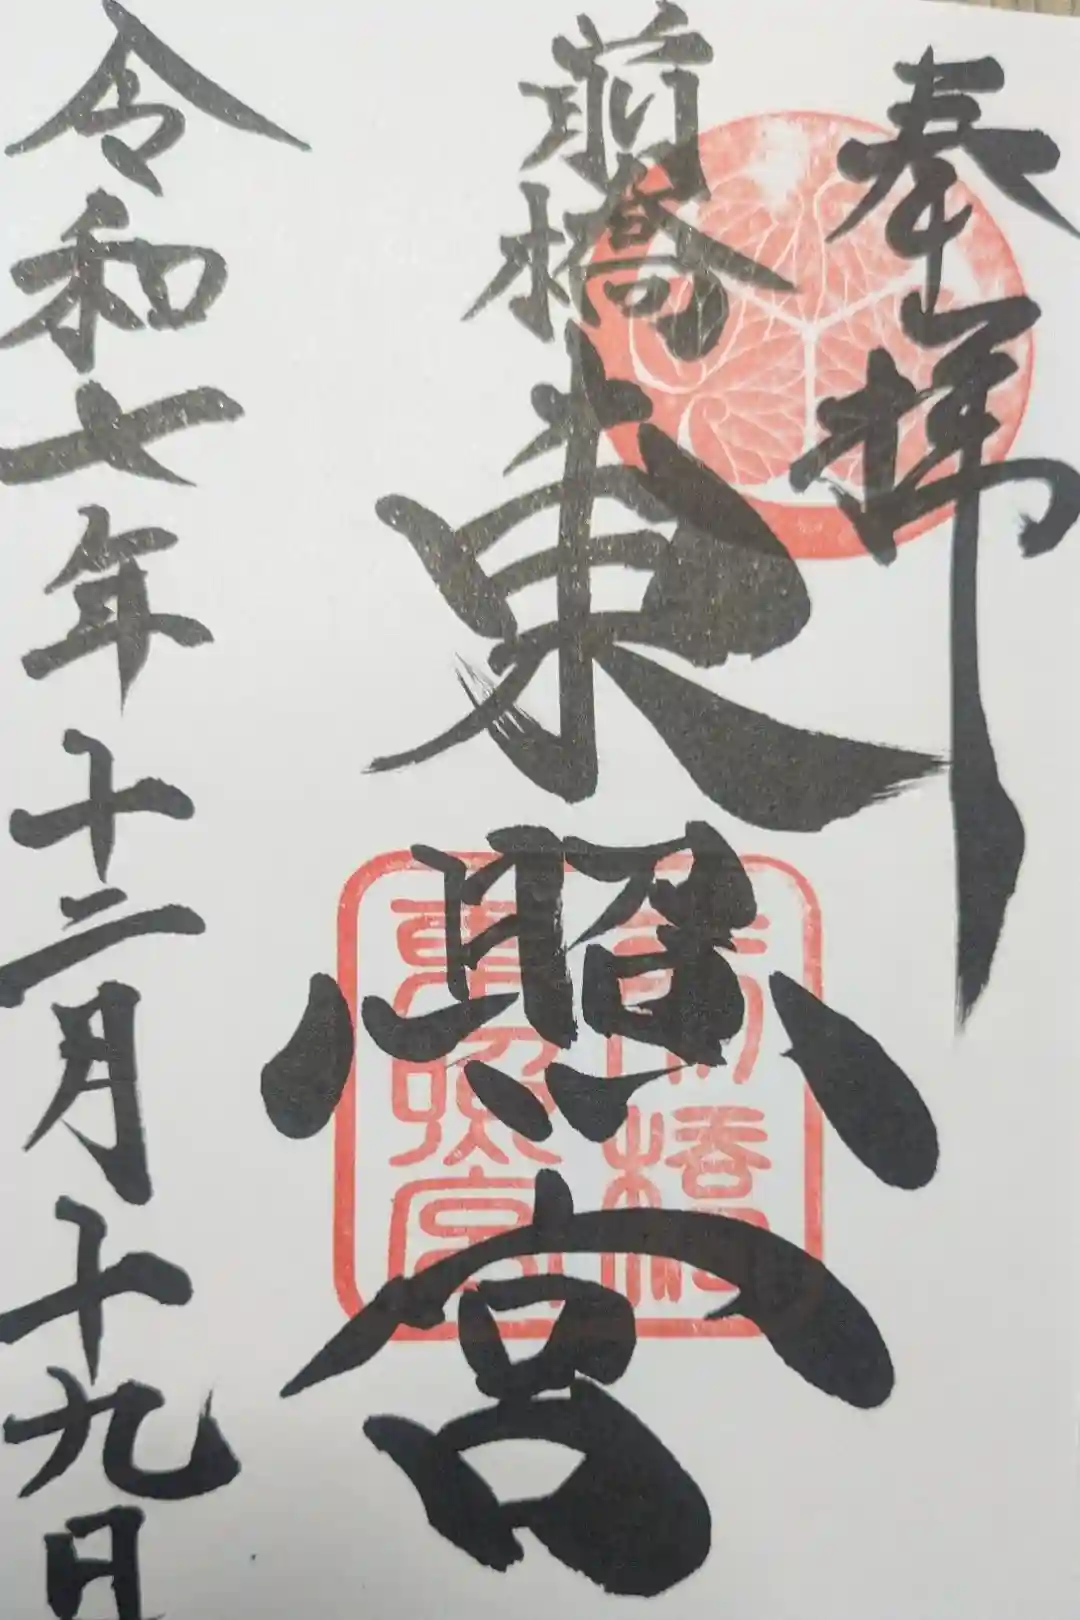 奉拝
前橋東照宮
前橋東照宮
令和七年十二月十九日